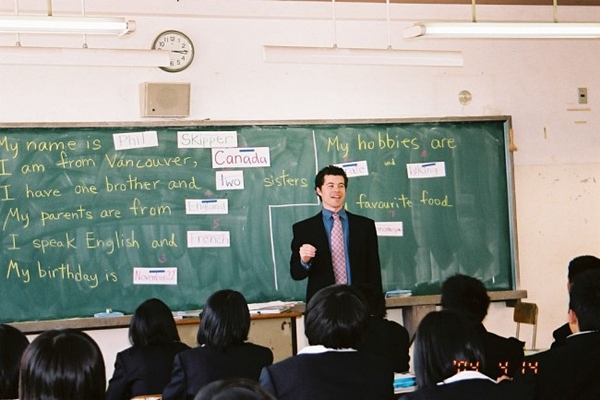 My name is Phil Skipper
I am from Vancouver, Canada
I have one brother and two sisters
My parents are from
I speak English and French
My birthday is
My hobbies are
and
favourite food
'04 4 14